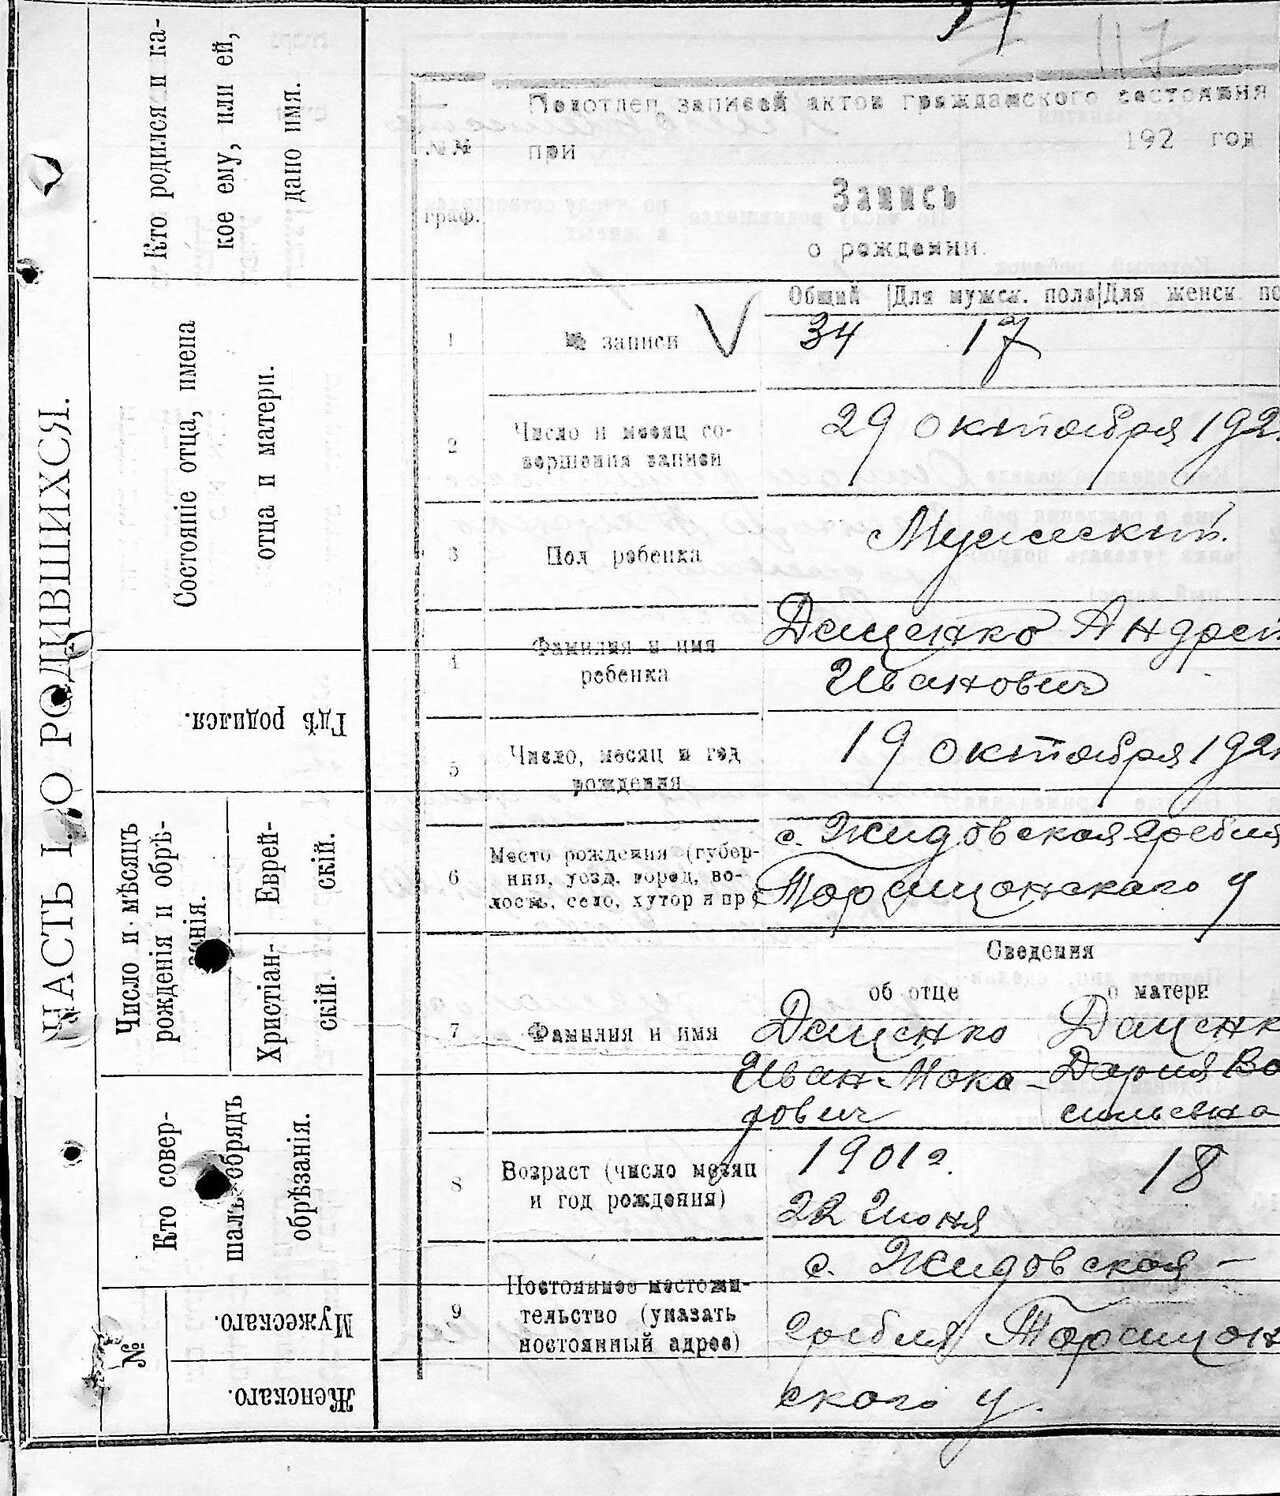 ЧАСТЬ I, О РОДИВШИХСЯ.
Кто родился и ка-
кое ему, или ей,
дано имя.
Состояніе отца, имена
отца и матери.
Гдѣ родился.
Число и мѣсяцъ
рожденія и обрѣ-
занія.
Еврей-
скій.
Христіан-
скій.
Кто совер-
шалъ обрядъ
обрѣзанія.
№
Мужескаго.
Женскаго.
Подотдел записей актов гражданского состояния
при 192 год
№№
граф.
Запись
о рождении.
Общий Для мужск. пола Для женск. по
1 № записи 34 17
2 Число и месяц со-
вершения записи
29 октября 192
3 Пол ребенка Мужеский.
4 Фамилия и имя
ребенка
Даценко Андрей
Иванович
5 Число, месяц и год
рождения
19 октября 192
6 Место рождения (губер-
ния, уезд, город, во-
лость, село, хутор и пр
с. Жидовская гребля
Таращанскаго у
Сведения
об отце о матери
7 Фамилия и имя
Даценко
Иван Мока-
рович
Даценк
Дария Ва
сильевна
8 Возраст (число месяц
и год рождения)
1901 г.
22 Июня
18
9 Постоянное местожи-
тельство (указать
постоянный адрес)
с. Жидовская-
гребля Таращан
ского у.